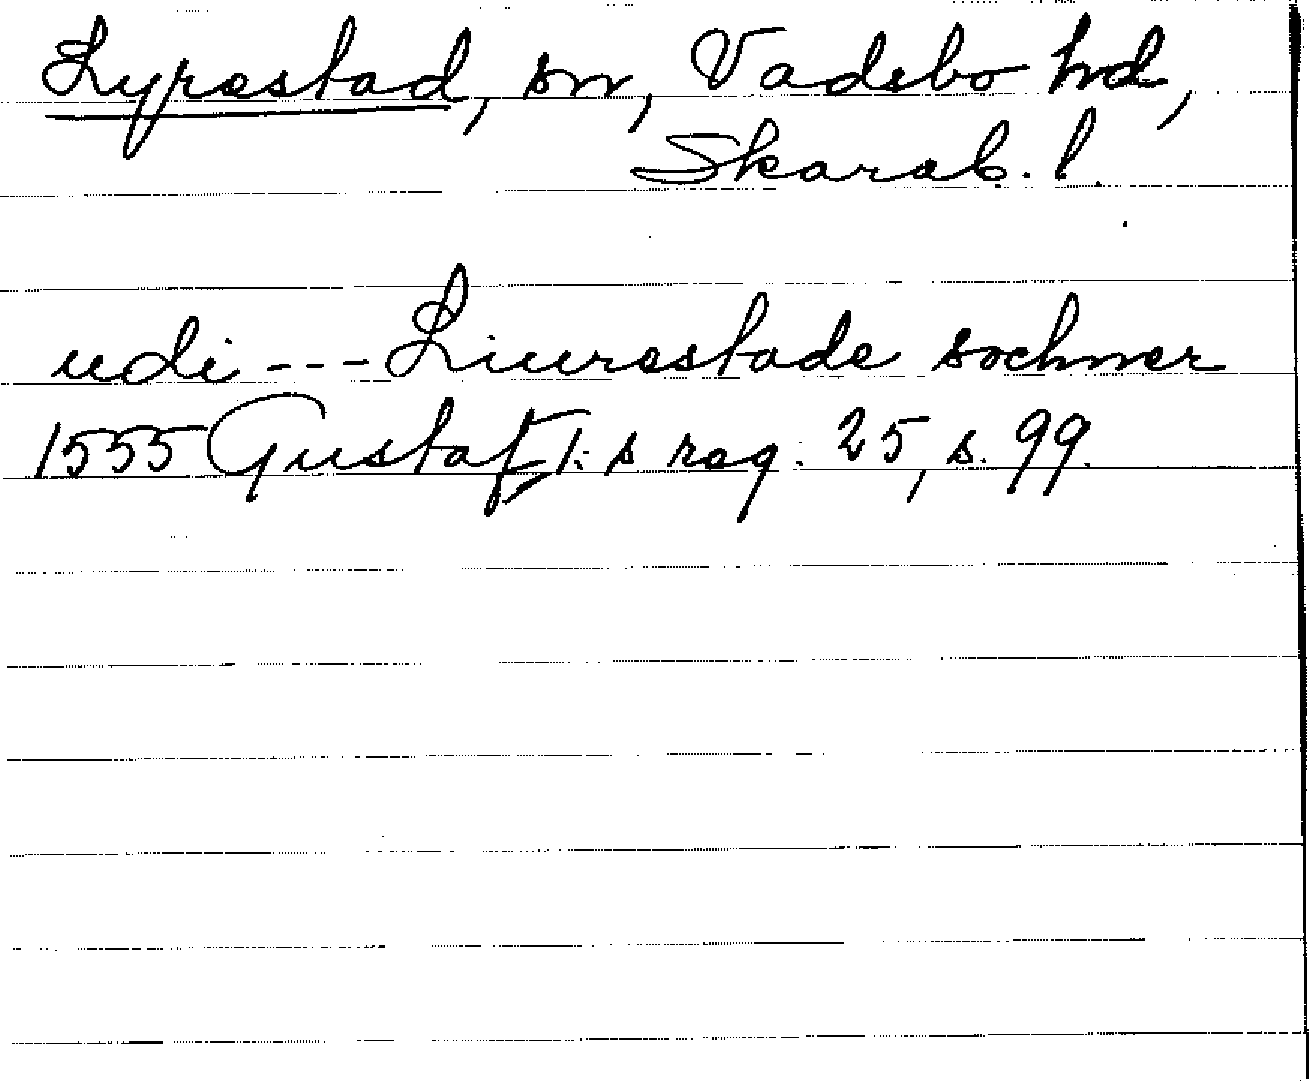 Lyrestad, sn, Vadsbo hd,
Skarab. l.
udi --- Liurestade sochner
1555 Gustaf I:s reg. 25, s. 99.